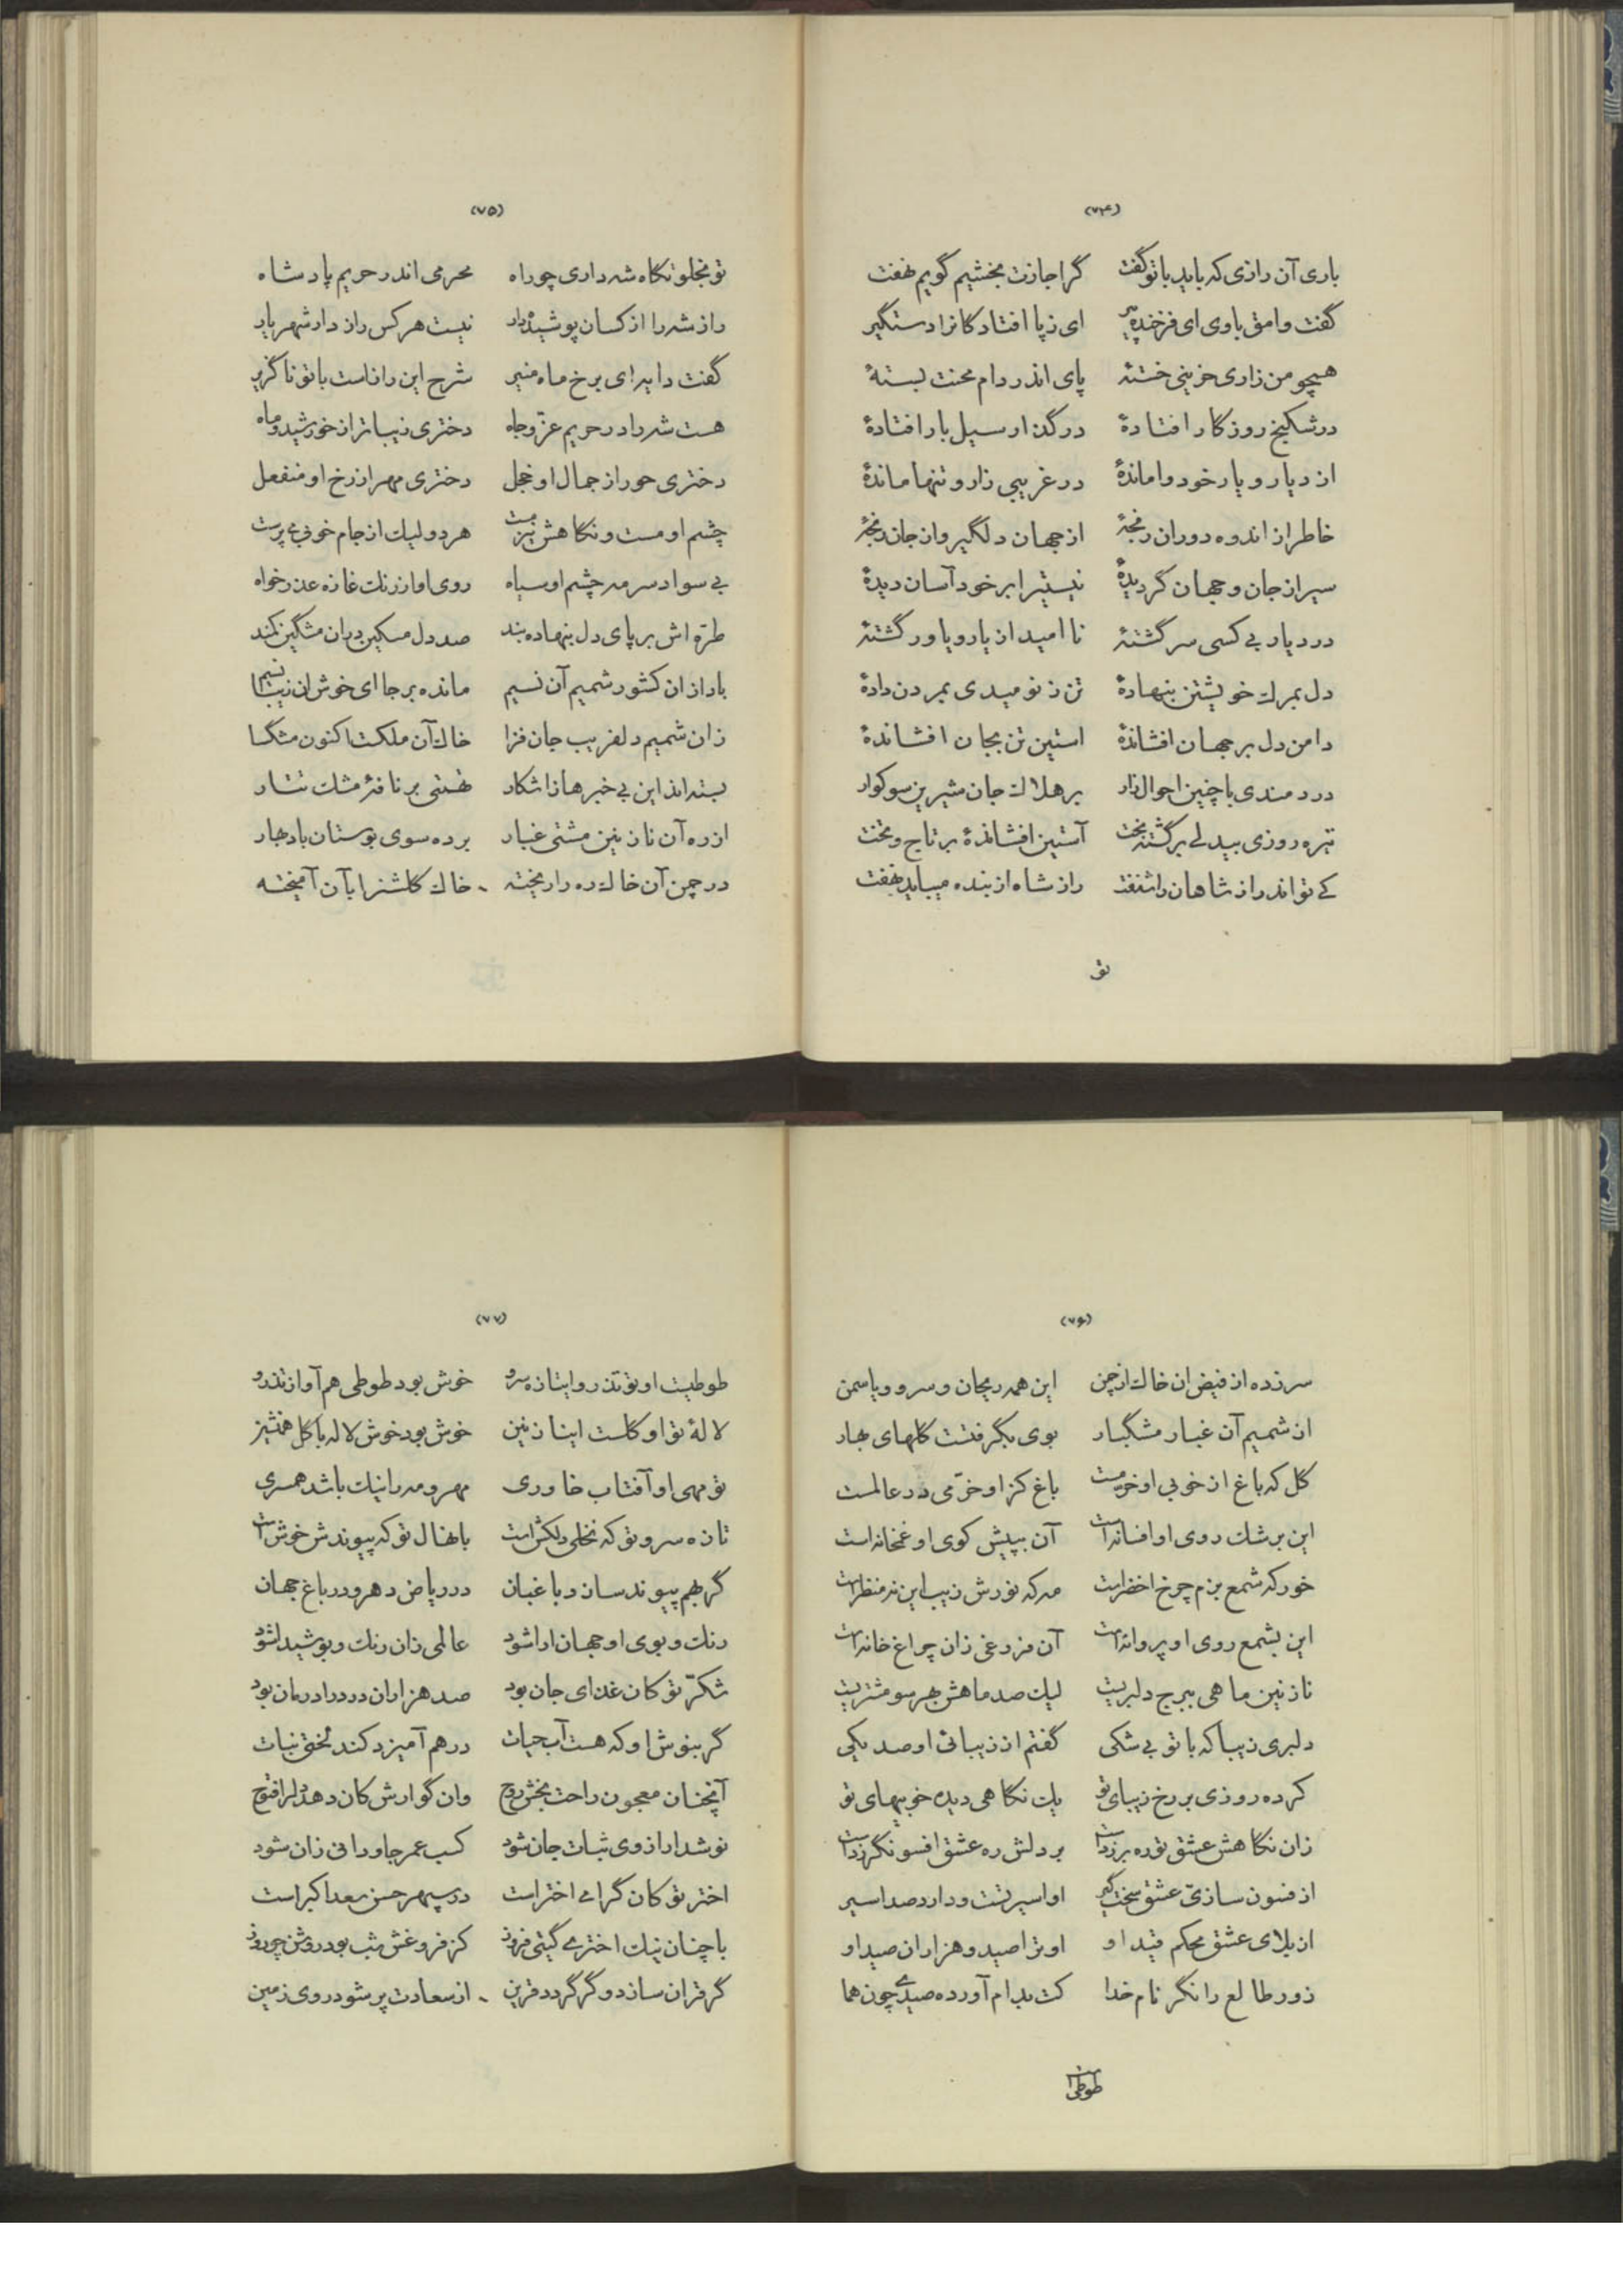 (۷۴)
باری آن رازی که باید با تو گفت گر اجازت بخشیم گویم نهفت
گفت وامق با وی ای فرخنده پیر ای ز پا افتادگانرا دستگیر
همچو من زاری حزینی خستهٔ پای اندر دام محنت بستهٔ
در شکنج روزگار افتادهٔ در گذار سیل بار افتادهٔ
از دیار و یار خود واماندهٔ در غریبی زار و تنها ماندهٔ
خاطر از اندوه دوران رنجهٔ از جهان دلگیر و از جان رنجهٔ
سیر از جان و جهان گردیدهٔ نیستی را بر خود آسان دیدهٔ
در دیار بی کسی سرگشتهٔ نا امید از یار و یاور گشتهٔ
دل بمرک خویشتن بنهادهٔ تن ز نومیدی بمردن دادهٔ
دامن دل بر جهان افشاندهٔ استین تن بجان افشاندهٔ
دردمندی با چنین احوال زار بر هلاک جان شیرین سوکوار
تیره روزی بیدلی برگشته بخت آستین افشاندهٔ بر تاج و تخت
کی تواند راز شاهان را شنفت راز شاه از بنده میباید نهفت
تو
(۷۵)
تو بخلوتگاه شه داری چو راه محرمی اندر حریم پادشاه
راز شه را از کسان پوشیده دار نیست هر کس راز دار شهریار
گفت دایه ای برخ ماه منیر شرح این راز است با تو ناگزیر
هست شه را در حریم عزّ و جاه دختری زیباتر از خورشید و ماه
دختری حور از جمال او خجل دختری مهر از رخ او منفعل
چشم او مست و نگاهش نیز مست هر دو لیک از جام خوبی می پرست
بی سواد سرمه چشم او سیاه روی او از رنک غازه عذر خواه
طرّه اش بر پای دل بنهاده بند صد دل مسکین بدان مشکین کمند
باد از ان کشور شمیم آن نسیم مانده بر جا ای خوش ان زیبا نسیم
زان شمیم دلفریب جان فزا خاک آن ملکت اکنون مشکسا
بسته اند این بی خبرها زاشکار تهمتی بر نافهٔ مشک تتار
از ره آن نازنین مشتی غبار برده سوی بوستان باد بهار
در چمن آن خاک ره را ریخته خاک گلشنرا بآن آمیخته
(۷۶)
سر زده از فیض ان خاک از چمن این همه ریحان و سرو و یاسمن
از شمیم آن غبار مشگبار بوی بگرفتست گلهای بهار
گل که باغ از خوبی او خرمست باغ کز او خرّمی در عالمست
این برشک روی او افسانه است آن بپیش کوی او غمخانه است
خور که شمع بزم چرخ اخضر است مه که نورش زیب این نه منظر است
این بشمع روی او پروانه است آن فروغی زان چراغ خانه است
نازنین ماهی ببرج دلبریت لیک صد ماهش بهر سو مشتریت
دلبری زیبا که با تو بی شکی گفتم از زیبائی او صد یکی
کرده روزی بر رخ زیبای تو یک نگاهی دیده خوبیهای تو
زان نگاهش عشق تو ره بر زد است بر دلش ره عشق افسونگر زد است
از فسون سازیّ عشق سخت گیر او اسیر تست و دارد صد اسیر
از بلای عشق محکم قید او او ترا صید و هزاران صید او
زور طالع را نگر نام خدا کت بدام آورده صیدی چون هما
طوطیست
(۷۷)
طوطیست او تو تذرو ایتازه سرو خوش بود طوطی هم آواز تذرو
لالهٔ تو او گلست اینازنین خوش بود خوش لاله با گل همنشین
تو مهی او آفتاب خاوری مهر و مه را نیک باشد همسری
تازه سرو تو که نخلی دلکش است با نهال تو که پیوندش خوش است
گر بهم پیوند سازد باغبان در ریاض دهر و در باغ جهان
رنک و بوی او جهان ارا شود عالمی زان رنک و بو شیدا شود
شکّر تو کان غذای جان بود صد هزاران درد را درمان بود
گر بنوش او که هست آب حیات در هم آمیزد کند لختی نبات
آنچنان معجون راحت بخش روح وان گوارش کان دهد دلرا فتوح
نوشدار از وی ثبات جان شود کسب عمر جاودانی زان شود
اختر تو کان گرامی اختر است در سپهر حسن سعد اکبر است
با چنان نیک اختری گیتی فروز کز فروغش شب بود روشن چو روز
گر قران سازد و گر گردد قرین از سعادت پر شود روی زمین